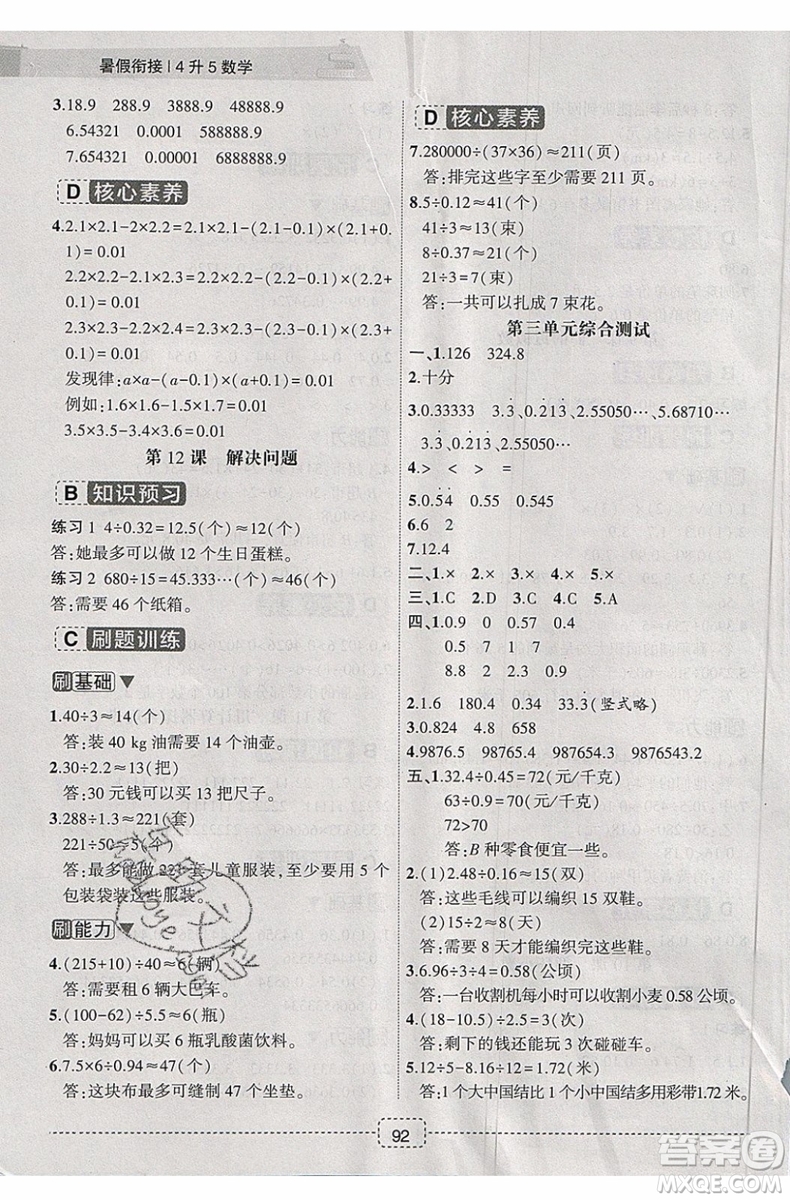 暑假衔接 | 4升5数学
3.18.9 288.9 3888.9 48888.9
6.54321 0.0001 588888.9
7.654321 0.00001 6888888.9
D 核心素养
4.2.1×2.1-2×2.2=2.1×2.1-(2.1-0.1)×(2.1+
0.1)=0.01
2.2×2.2-2.1×2.3=2.2×2.2-(2.2-0.1)×(2.2+
0.1)=0.01
2.3×2.3-2.2×2.4=2.3×2.3-(2.3-0.1)×(2.3+
0.1)=0.01
发现律:a×a-(a-0.1)×(a+0.1)=0.01
例如:1.6×1.6-1.5×1.7=0.01
3.5×3.5-3.4×3.6=0.01
第12课 解决问题
B 知识预习
练习1 4÷0.32=12.5(个)≈12(个)
答:她最多可以做12个生日蛋糕。
练习2 680÷15=45.333…(个)≈46(个)
答:需要46个纸箱。
C 刷题训练
刷基础
1.40÷3≈14(个)
答:装40 kg油需要14个油壶。
2.30÷2.2≈13(把)
答:30元钱可以买13把尺子。
3.288÷1.3≈221(套)
221÷50≈5(个)
答:最多能做221套儿童服装,至少要用5个
包装袋装这些服装。
刷能力
4.(215+10)÷40≈6(辆)
答:需要6辆大巴车。
5.(100-62)÷5.5≈6(瓶)
答:妈妈可以买6瓶乳酸菌饮料。
6.7.5×6÷0.94≈47(个)
答:这块布最多可缝制47个坐垫。
D 核心素养
7.280000÷(37×36)≈211(页)
答:排完这些字至少需要211页。
8.5÷0.12≈41(个)
41÷3≈13(束)
8÷0.37≈21(个)
21÷3=7(束)
答:一共可以扎成7束花。
第三单元综合测试
一、1.126 324.8
2.十分
3.0.33333 3.3̇、0.2̇13̇、2.55050…、5.68710…
3.3̇、0.2̇13̇、2.55050…
4.> < > =
5.0.54 0.55 0.5 0.545
6.6 2
7.12.4
二、1.× 2.× 3.× 4.× 5.×
三、1.C 2.D 3.C 4.C 5.A
四、1.0.9 0 0.57 0.9
0.5 7 1
8.8 2.3 0.9
2.1.6 180.4 0.34 33.3(竖式略)
3.0.824 4.8 658
4.9876.5 98765.4 987654.3 9876543.2
五、1.32.4÷0.45=72(元/千克)
63÷0.9=70(元/千克)
72>70
答:B种零食便宜一些。
2.(1)2.48÷0.16≈15(双)
答:这些毛线可以编织15双鞋。
(2)15÷2≈8(天)
答:8天才能编织完这些鞋。
3.6.96÷3÷4=0.58(公顷)
答:一台收割机每小时可以收割小麦0.58公顷。
4.(18-10.5)÷2.5=3(次)
答:剩下的钱还能玩3次碰碰车。
5.12÷5-12.8÷8=1.72(米)
答:1个大中国结比1个小中国结多用彩带1.72米。
92
答案圈
MXQE.COM